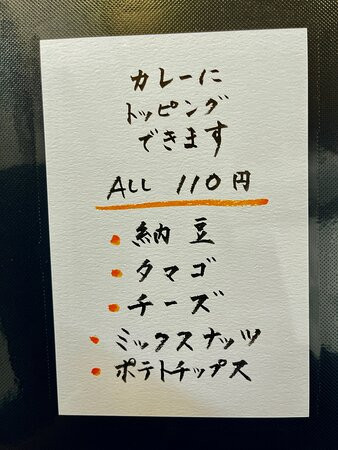 カレーに
トッピング
できます
ALL 110円
納豆
タマゴ
チーズ
ミックスナッツ
ポテトチップス